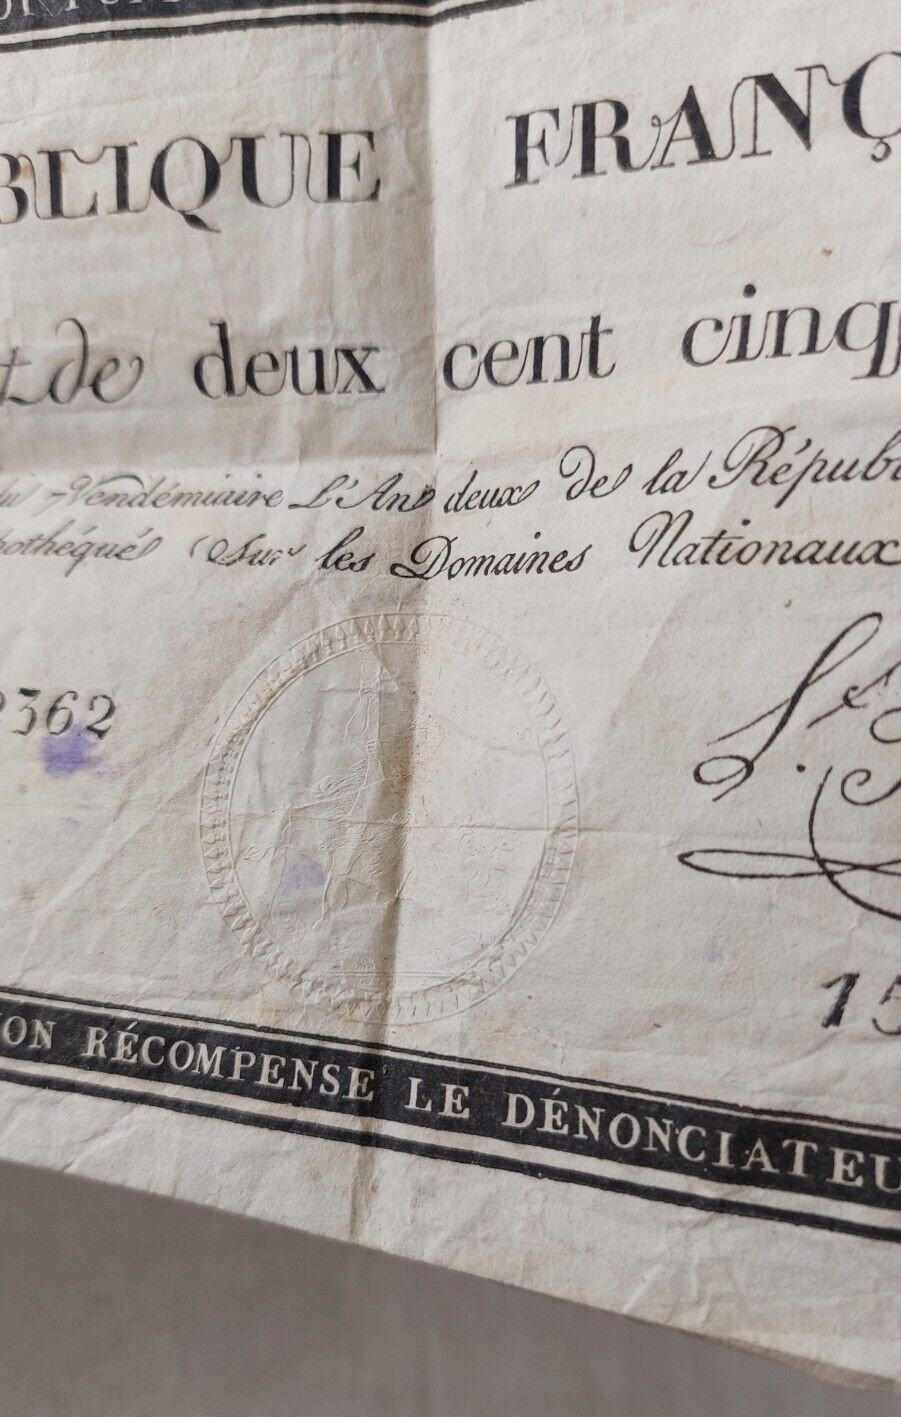 BLIQUE FRANÇ
t de deux cent cinq
Vendémiaire L'An deux de la Répub
pothéqué Sur les Domaines Nationaux
2362
15
ON RÉCOMPENSE LE DÉNONCIATEU